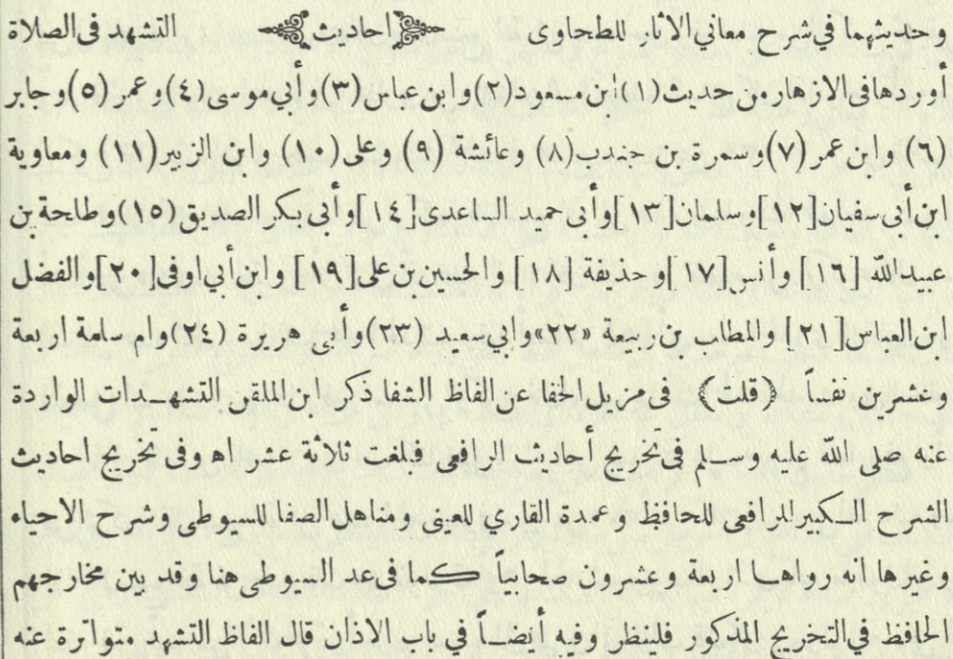 وحديثهما في شرح معاني الاثار للطحاوى ﴿احاديث﴾ التشهد فى الصلاة
أوردها فى الازهار من حديث (١) ابن مسعود (٢) وابن عباس (٣) وأبي موسى (٤) وعمر (٥) وجابر
(٦) وابن عمر (٧) وسمرة بن جندب (٨) وعائشة (٩) وعلى (١٠) وابن الزبير (١١) ومعاوية
ابن أبى سفيان [١٢] وسلمان [١٣] وأبى حميد الساعدى [١٤] وأبى بكر الصديق (١٥) وطلحة بن
عبيد الله [١٦] وأنس [١٧] وحذيفة [١٨] والحسين بن على [١٩] وابن أبي اوفى [٢٠] والفضل
ابن العباس [٢١] والمطلب بن ربيعة «٢٢» وابي سعيد (٢٣) وأبى هريرة (٢٤) وام سلمة اربعة
وعشرين نفساً ﴿قلت﴾ فى مزيل الخفا عن الفاظ الشفا ذكر ابن الملقن التشهدات الواردة
عنه صلى الله عليه وسلم فى تخريج أحاديث الرافعى فبلغت ثلاثة عشر اه وفى تخريج احاديث
الشرح الكبير للرافعى للحافظ وعمدة القاري للعينى ومناهل الصفا للسيوطى وشرح الاحياء
وغيرها انه رواها اربعة وعشرون صحابياً كما فى عد السيوطى هنا وقد بين مخارجهم
الحافظ في التخريج المذكور فلينظر وفيه أيضاً في باب الاذان قال الفاظ التشهد متواترة عنه